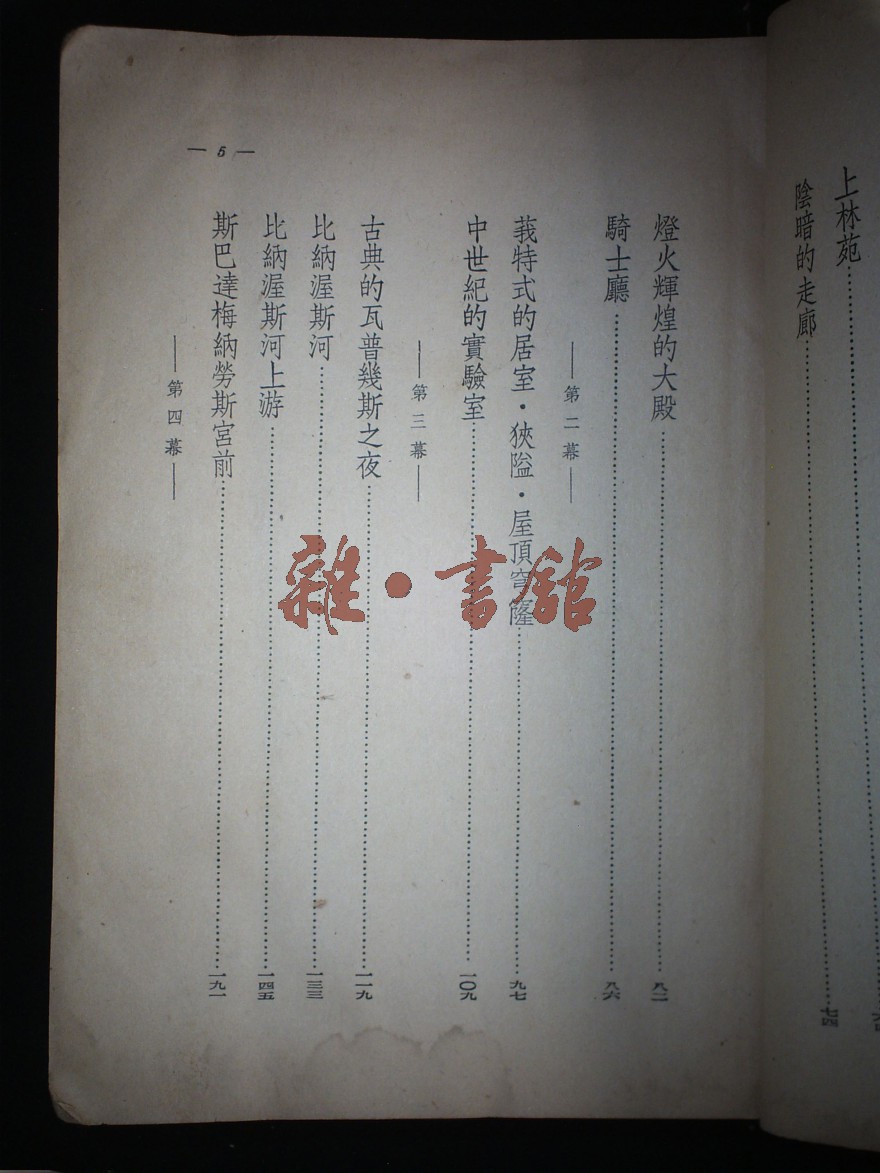 上林苑
陰暗的走廊 七四
— 5 —
燈火輝煌的大殿 八二
騎士廳 八六
第二幕
莪特式的居室·狹隘·屋頂穹窿 九七
中世紀的實驗室 一〇九
第三幕
古典的瓦普幾斯之夜 一一九
比納渥斯河 一三三
比納渥斯河上游 一四五
斯巴達梅納勞斯宮前 一九一
第四幕
雜·書館